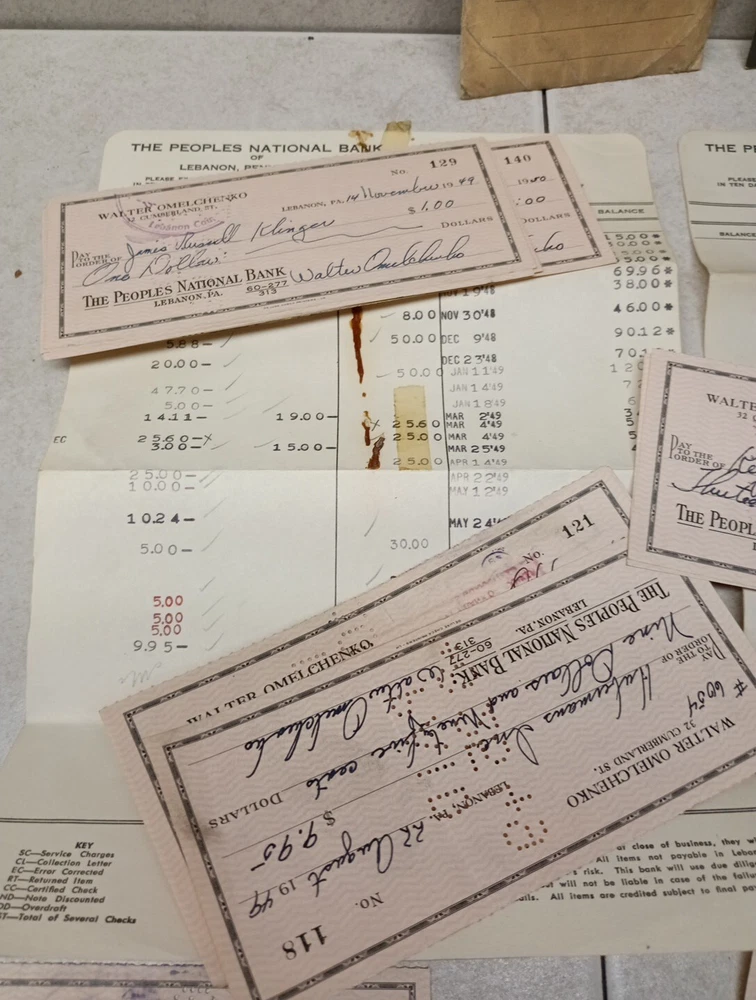 THE PEOPLES NATIONAL BANK
OF
LEBANON,
No. 129
WALTER OMELCHENKO
32 CUMBERLAND ST.
LEBANON, PA. 14 November 1949
PAY TO THE ORDER OF James Russell Klinger $1.00
One Dollar DOLLARS
THE PEOPLES NATIONAL BANK
LEBANON, PA.
60-277
313
Walter Omelchenko
140
:00
DOLLARS
BALANCE
69.96*
38.00*
46.00*
90.12*
8.00 NOV 30'48
50.00 DEC 9'48
DEC 23'48
20.00-
50.00 JAN 11'49
47.70-
JAN 14'49
5.00-
JAN 18'49
14.11- 19.00- MAR 2'49
25.60 MAR 4'49
EC 25.60-X 25.00 MAR 4'49
3.00- 15.00- MAR 25'49
25.00 APR 14'49
25.00- APR 22'49
10.00- MAY 12'49
10.24- MAY 24'
5.00- 30.00
5.00
5.00
5.00
9.95-
No. 121
WALTER OMELCHENKO
No. 118
WALTER OMELCHENKO
32 CUMBERLAND ST.
LEBANON, PA. 22 August 1949
#6054
PAY TO THE ORDER OF Hubermans Inc. $9.95
Nine Dollars and Ninety five cents DOLLARS
THE PEOPLES NATIONAL BANK
LEBANON, PA.
60-277
313
Walter Omelchenko
THE P
BALANCE
WALTER
32
PAY TO THE ORDER OF
THE PEOPL
KEY
SC—Service Charges
CL—Collection Letter
EC—Error Corrected
RT—Returned Item
CC—Certified Check
ND—Note Discounted
OD—Overdraft
ST—Total of Several Checks
at close of business, they w
All items not payable in Leba
risk. This bank will use due dilig
will not be liable in case of the failu
All items are credited subject to final pa